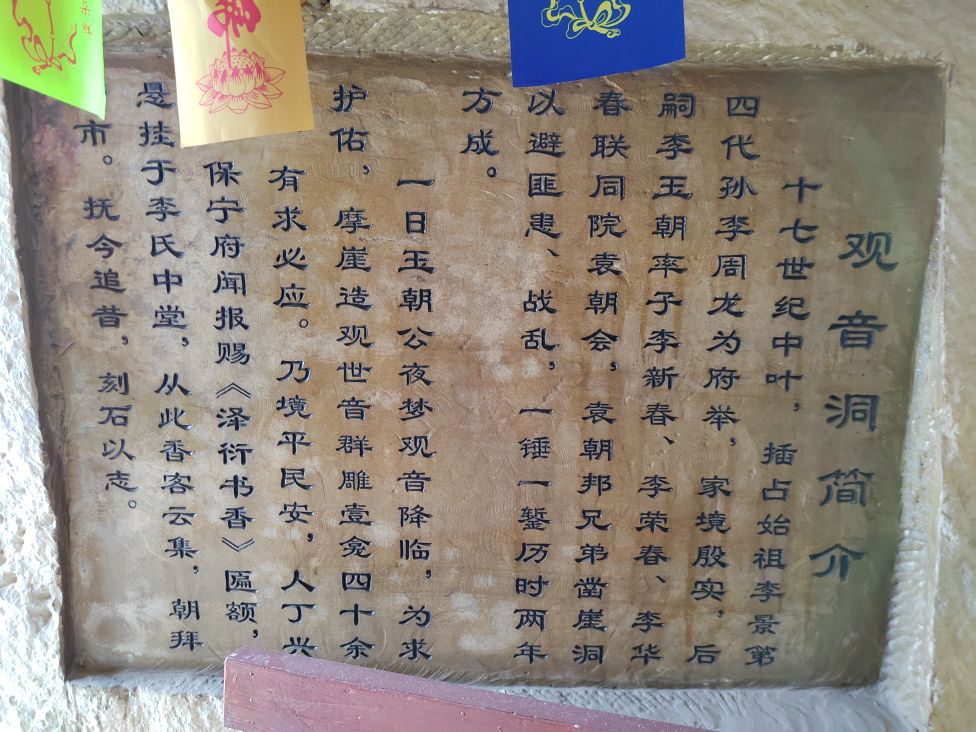 观音洞简介
十七世纪中叶，插占始祖李景第
四代孙李周龙为府举，家境殷实，后
嗣李玉朝率子李新春、李荣春、李华
春联同院袁朝会，袁朝邦兄弟凿崖洞
以避匪患、战乱，一锤一錾历时两年
方成。
一日玉朝公夜梦观音降临，为求
护佑，摩崖造观世音群雕壹龛四十余
有求必应。乃境平民安，人丁兴
保宁府闻报赐《泽衍书香》匾额，
悬挂于李氏中堂，从此香客云集，朝拜
市。抚今追昔，刻石以志。
佛